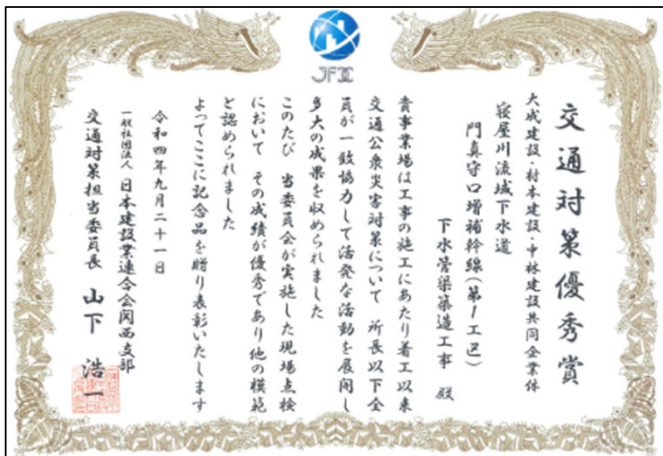 交通対策優秀賞
大成建設・村本建設・中林建設共同企業体
寝屋川流域下水道
門真守口増補幹線(第1工区)
下水管渠築造工事 殿
貴事業場は工事の施工にあたり着工以来
交通公衆災害対策について 所長以下全
員が一致協力して活発な活動を展開し
多大の成果を収められました
このたび 当委員会が実施した現場点検
において その成績が優秀であり他の模範
と認められました
よってここに記念品を贈り表彰いたします
令和四年九月二十一日
一般社団法人 日本建設業連合会関西支部
交通対策担当委員長 山下 浩一